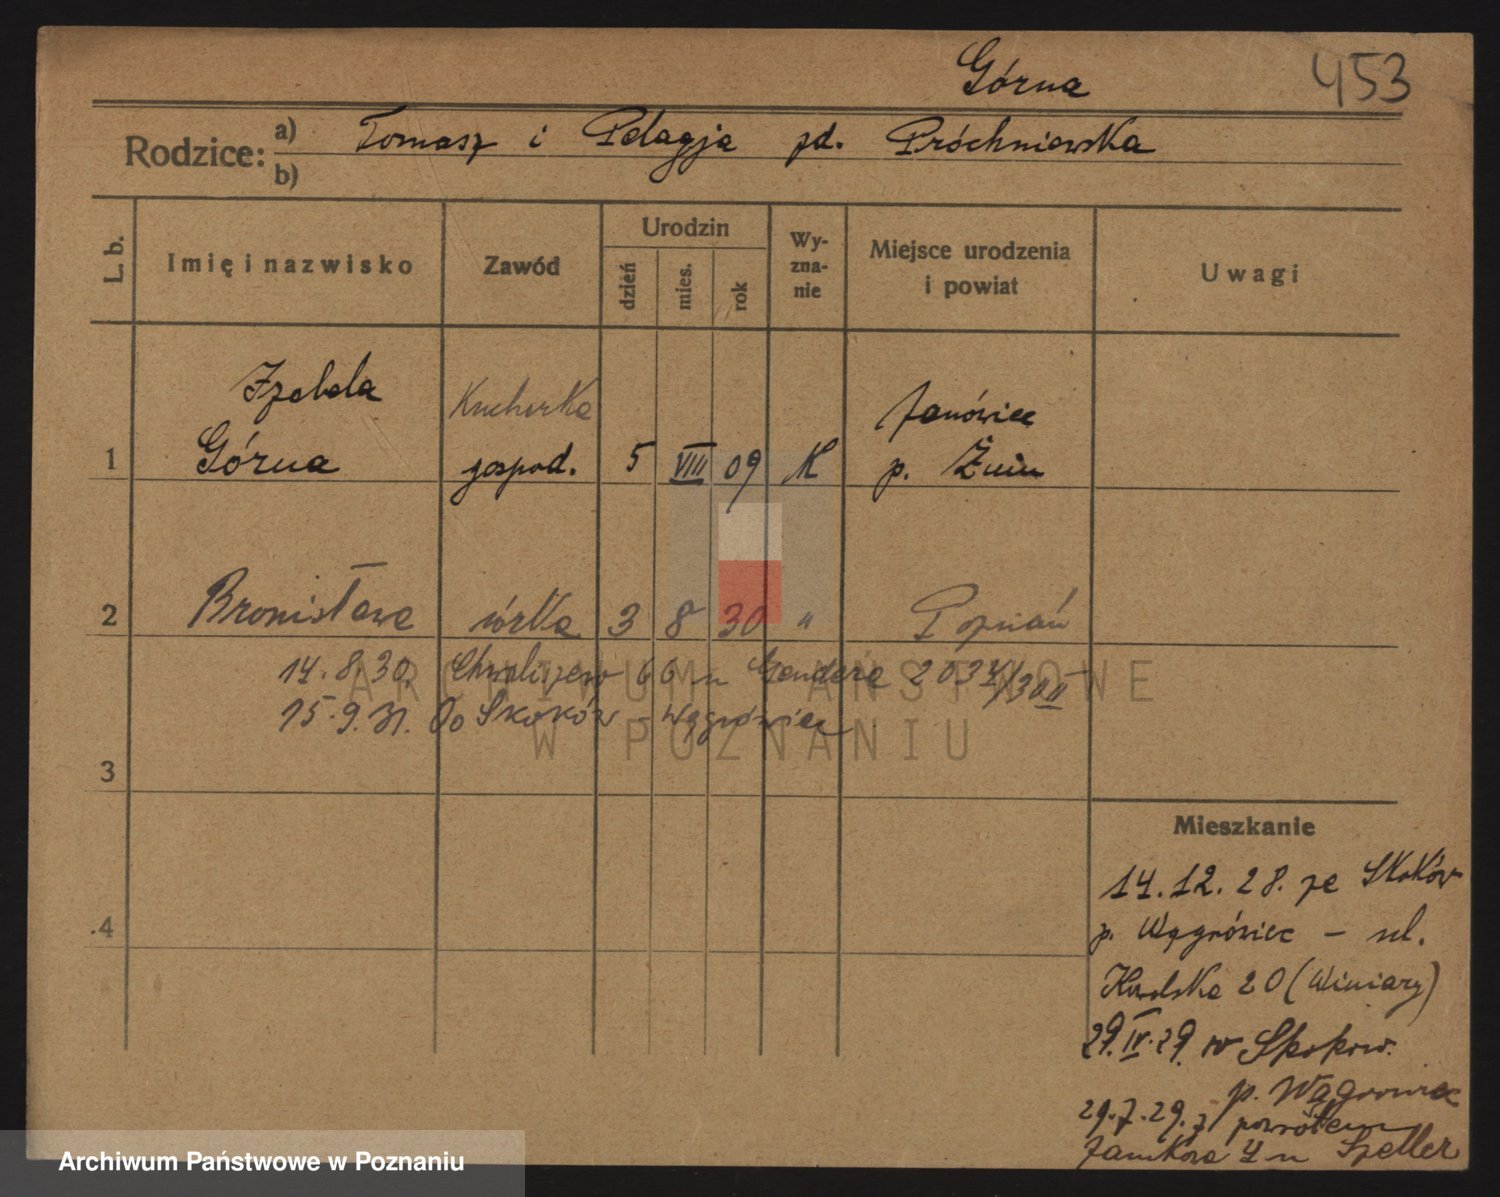 Górna
453
Rodzice: a) Tomasz i Pelagja zd. Próchniewska
b)
L. b.
Imię i nazwisko
Zawód
Urodzin
dzień
mies.
rok
Wy-
zna-
nie
Miejsce urodzenia
i powiat
Uwagi
Izabela Kucharka Janówiec
1 Górna gospod. 5 VIII 09 K p. Żnin
2 Bronisława córka 3 8 30 " Poznań
14.8.30 Chwaliszewo 66 u 203
15.9.31. Do Skoków - Wągrówiec
ARCHIWUM PAŃSTWOWE
W POZNANIU
3
4
Mieszkanie
14.12.28. ze Skoków
p. Wągrówiec - ul.
20 (Winiary)
29.IV.29. w Skokow.
p. Wągrowiec
29.7.29. z powrotem
4 u Szeller
Archiwum Państwowe w Poznaniu